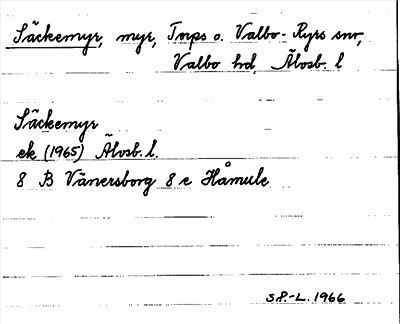 Säckemyr, myr, Torps o. Valbo-Ryrs snr,
Valbo hd, Älvsb. l
Säckemyr
ek (1965) Älvsb. l.
8 B Vänersborg 8 e Håmule
S.P.-L. 1966